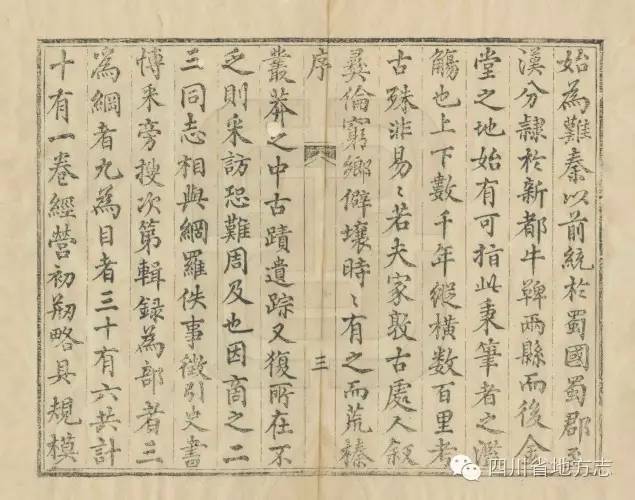 始為難秦以前統於蜀國蜀郡至
漢分隸於新都牛鞞兩縣而後金
堂之地始有可指此秉筆者之濫
觴也上下數千年縱橫數百里考
古殊非易〻若夫家敦古處人敘
彞倫窮鄉僻壤時〻有之而荒榛
序
三
叢莽之中古蹟遺踪又復所在不
乏則采訪恐難周及也因商之二
三同志相與綱羅佚事徵引史書
博采旁搜次第輯録為部者三
為綱者九為目者三十有六共計
十有一卷經營初刱略具規模
四川省地方志